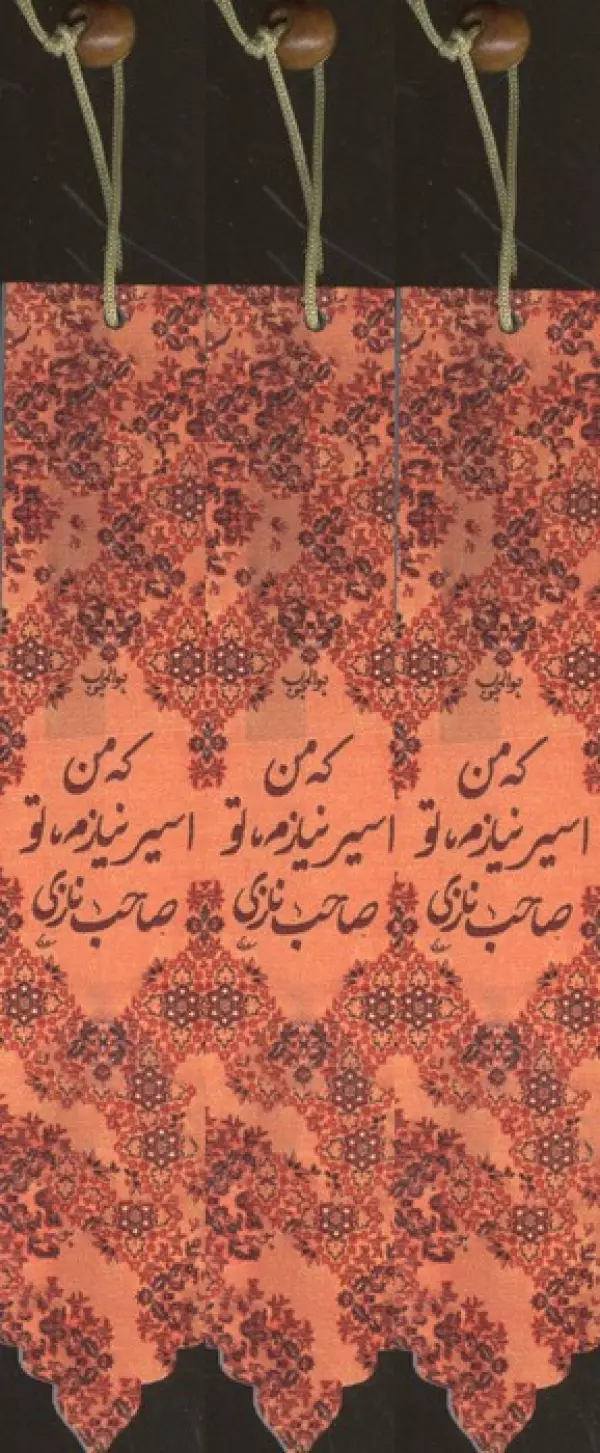 که من
اسیر نیازم، تو
صاحب نازی
که من
اسیر نیازم، تو
صاحب نازی
که من
اسیر نیازم، تو
صاحب نازی